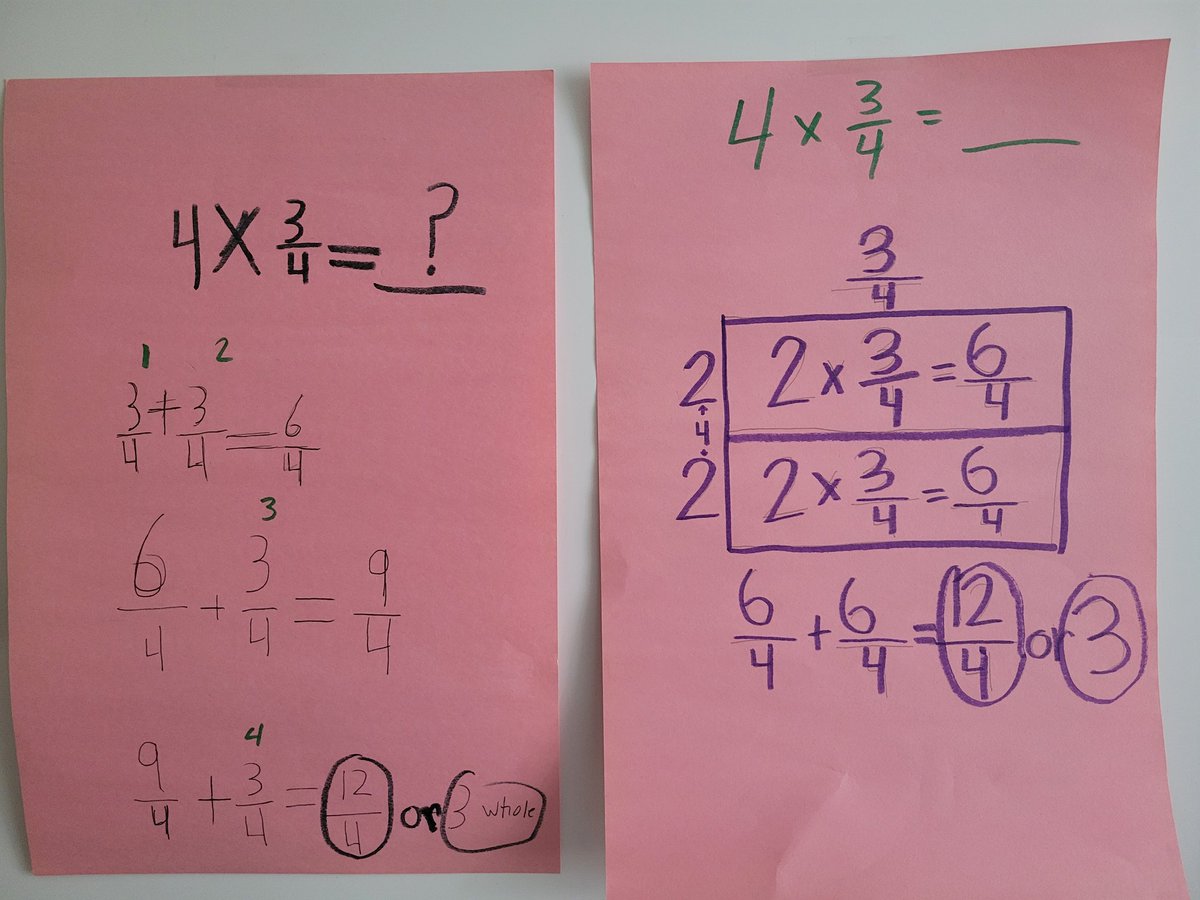 4 X 3/4 = ?
1 2
3/4 + 3/4 = 6/4
3
6/4 + 3/4 = 9/4
4
9/4 + 3/4 = 12/4 or 3 whole
4 x 3/4 =
3/4
2 2 x 3/4 = 6/4
4
2 2 x 3/4 = 6/4
6/4 + 6/4 = 12/4 or 3